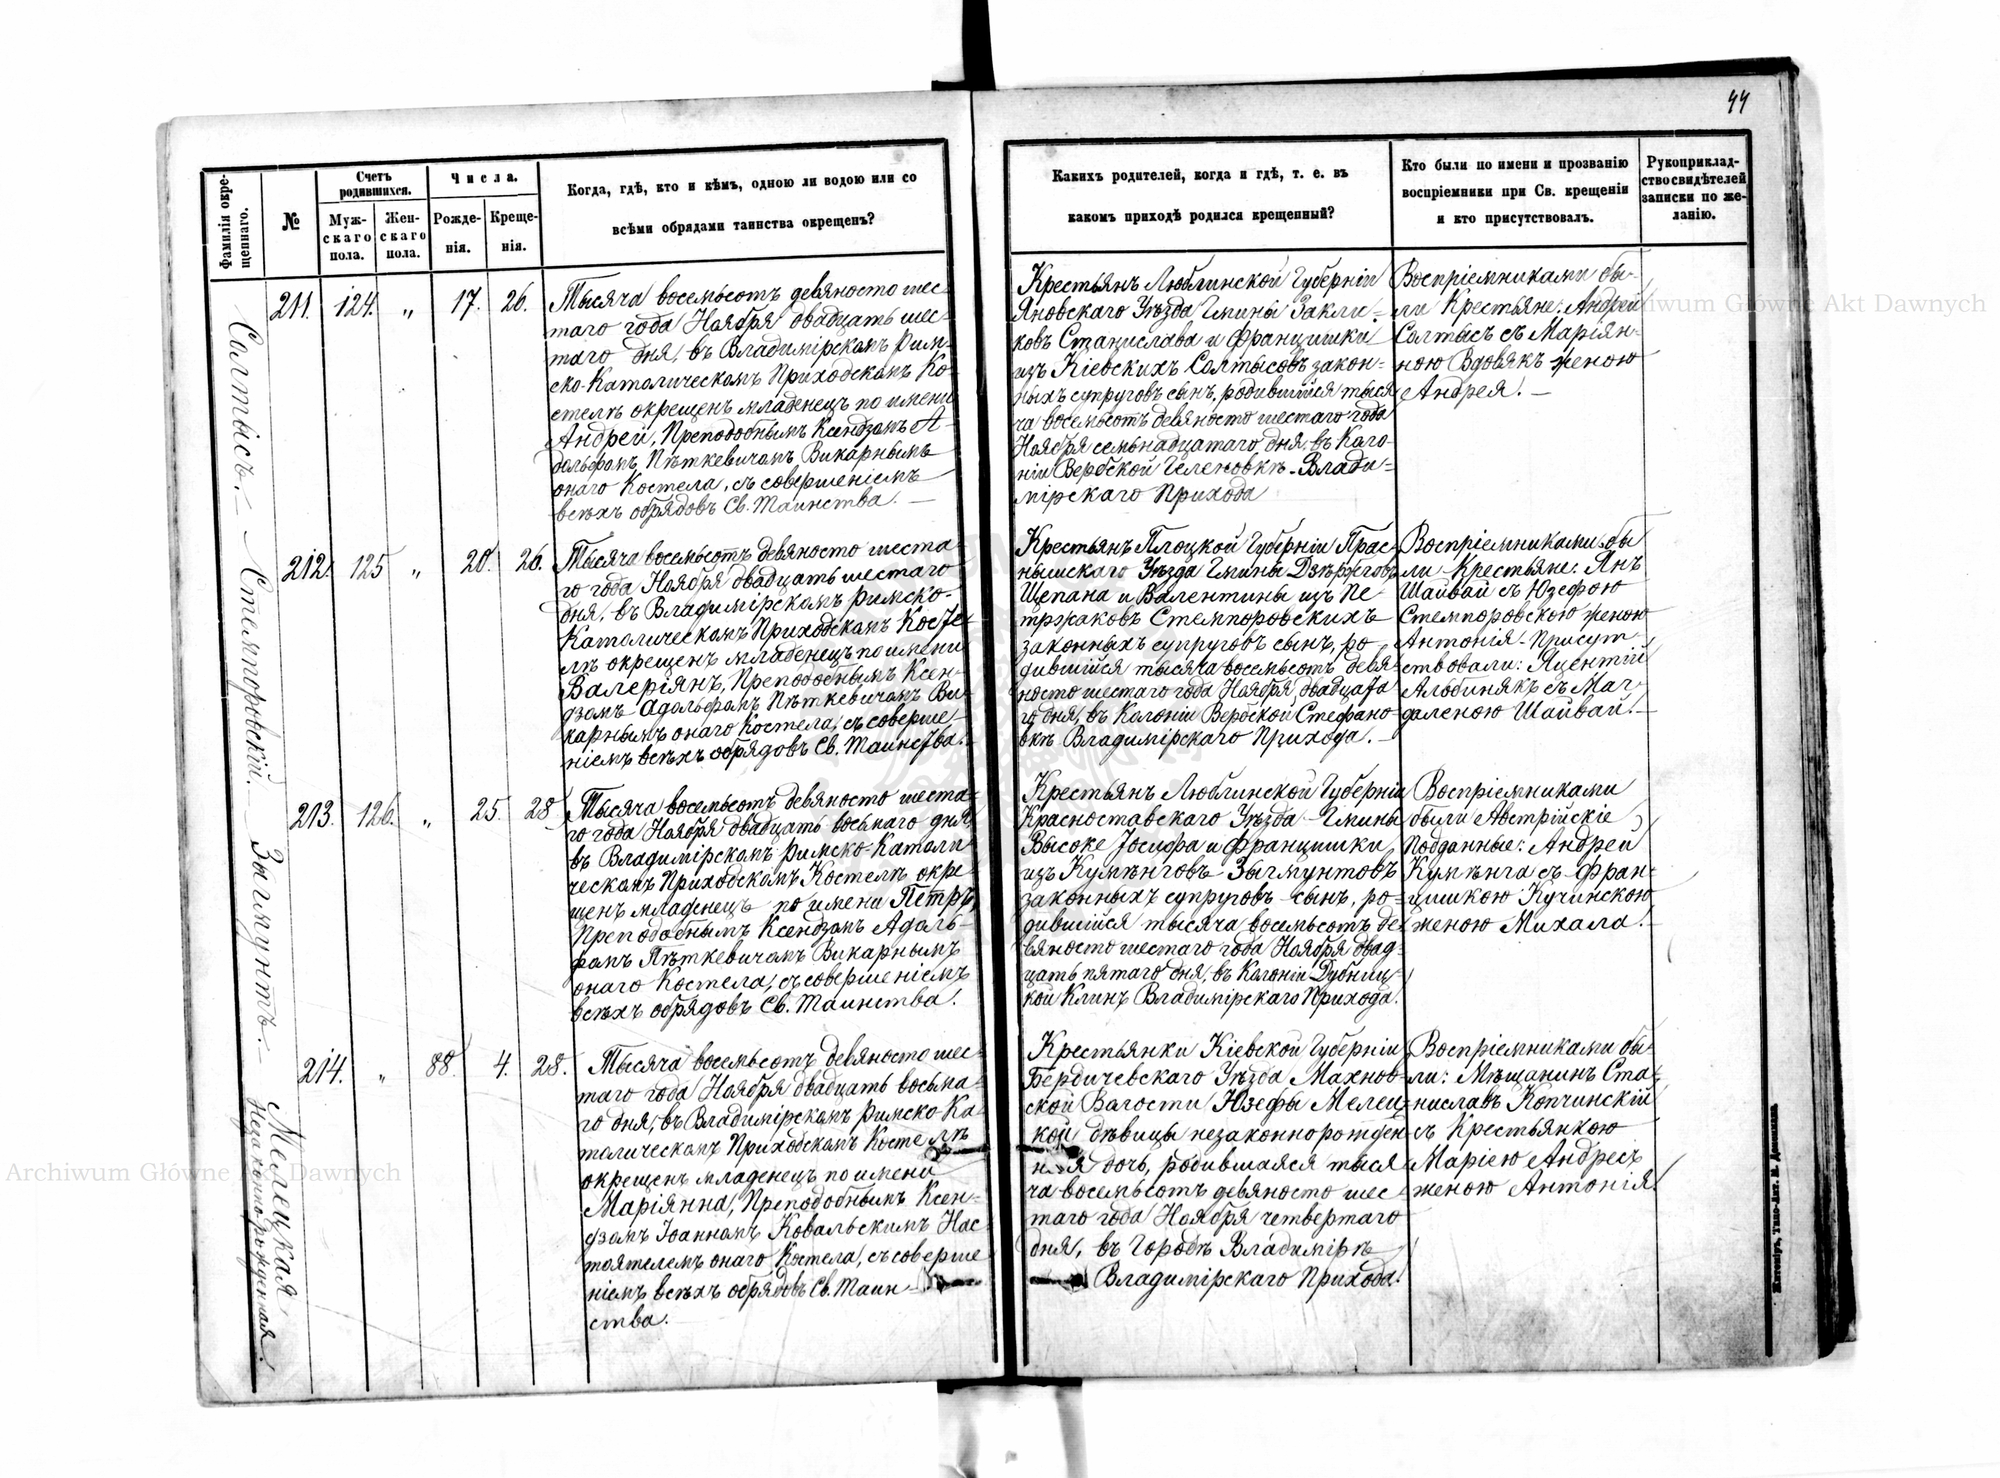 44
Фамилія окре-
щеннаго.
№
Счетъ
родившихся.
Муж-
скаго
пола.
Жен-
скаго
пола.
Числа.
Рожде-
нія.
Креще-
нія.
Когда, гдѣ, кто и кѣмъ, одною ли водою или со
всѣми обрядами таинства окрещенъ?
Какихъ родителей, когда и гдѣ, т. е. въ
какомъ приходѣ родился крещенный?
Кто были по имени и прозванію
воспріемники при Св. крещеніи
и кто присутствовалъ.
Рукоприклад-
ство свидѣтелей
записки по же-
ланію.
Солтысъ.
211. 124. „ 17. 26.
Тысяча восемьсотъ девяносто шес-
таго года Ноября двадцать шес-
таго дня, въ Владимірскомъ Рим-
ско-Католическомъ Приходскомъ Ко-
стелѣ окрещенъ младенецъ по имени
Андрей, Преподобнымъ Ксендзомъ А-
дольфомъ Пѣткевичомъ Викарнымъ
онаго Костела, съ совершеніемъ
всѣхъ обрядовъ Св. Таинства. —
Крестьянъ Люблинской Губерніи
Яновскаго Уѣзда Гмины Закли-
ковъ Станислава и Францишки
изъ Кіевскихъ Солтысовъ закон-
ныхъ супруговъ сынъ, родившійся тыся
ча восемьсотъ девяносто шестаго года
Ноября семьнадцатаго дня, въ Коло-
ніи Вербской Геленовкѣ - Влади-
мірскаго Прихода
Воспріемниками бы-
ли Крестьяне: Андрей
Солтысъ съ Маріян-
ною Вдовякъ женою
Андрея. —
Стемпоровскій.
212. 125 „ 20. 26.
Тысяча восемьсотъ девяносто шеста-
го года Ноября двадцать шестаго
дня, въ Владимірскомъ Римско-
Католическомъ Приходскомъ Косте-
лѣ окрещенъ младенецъ по имени
Валеріянъ, Преподобнымъ Ксен-
дзомъ Адольфомъ Пѣткевичомъ Ви-
карнымъ онаго Костела, съ соверше-
ніемъ всѣхъ обрядовъ Св. Таинства. —
Крестьянъ Плоцкой Губерніи Прас-
нышскаго Уѣзда Гмины Дзѣржговъ
Щепана и Валентины изъ Пе-
тржаковъ Стемпоровскихъ
законныхъ супруговъ сынъ, ро-
дившійся тысяча восемьсотъ девя-
носто шестаго года Ноября двадцата
го дня, въ Колоніи Вербской Стефано-
вкѣ Владимірскаго Прихода. —
Воспріемниками бы
ли Крестьяне: Янъ
Шайвай съ Юзефою
Стемпоровскою женою
Антонія - Присут
ствовали: Яцентій
Альбинякъ съ Маг-
даленою Шайвай. —
Зыгмунтъ. —
213. 126. „ 25. 28
Тысяча восемьсотъ девяносто шеста-
го года Ноября двадцать восьмаго дня,
въ Владимірскомъ Римско-Католи
ческомъ Приходскомъ Костелѣ окре
щенъ младенецъ по имени Петръ,
Преподобнымъ Ксендзомъ Адоль-
фомъ Пѣткевичомъ Викарнымъ
онаго Костела, съ совершеніемъ
всѣхъ обрядовъ Св. Таинства.
Крестьянъ Люблинской Губерніи
Красноставскаго Уѣзда Гмины
Высоке Іосифа и Францишки
изъ Кумѣнговъ Зыгмунтовъ
законныхъ супруговъ сынъ, ро-
дившійся тысяча восемьсотъ де
вяносто шестаго года Ноября двад-
цать пятаго дня, въ Колоніи Дубниц-
кой Клинъ Владимірскаго Прихода.
Воспріемниками
были Австрійскіе
подданные: Андрей
Кумѣнга съ Фран-
цишкою Кучинскою
женою Михала. —
Мелецкая
Незаконнорожденная.
214. „ 88. 4. 28.
Тысяча восемьсотъ девяносто шес-
таго года Ноября двадцать восьма-
го дня, въ Владимірскомъ Римско-Ка
толическомъ Приходскомъ Костелѣ
окрещенъ младенецъ по имени
Маріянна, Преподобнымъ Ксен-
дзомъ Іоанномъ Ковальскимъ Нас
тоятелемъ онаго Костела, съ соверше
ніемъ всѣхъ обрядовъ Св. Таин-
ства.
Крестьянки Кіевской Губерніи
Бердичевскаго Уѣзда Махнов-
ской Волости Юзефы Мелец-
кой дѣвицы незаконнорожден-
ная дочь, родившаяся тыся
ча восемьсотъ девяносто шес
таго года Ноября четвертаго
дня, въ Городѣ Владимірѣ
Владимірскаго Прихода.
Воспріемниками бы-
ли: Мѣщанинъ Ста-
ниславъ Копчинскій
съ Крестьянкою
Маріею Андресъ
женою Антонія.
Archiwum Główne Akt Dawnych
Archiwum Główne Akt Dawnych